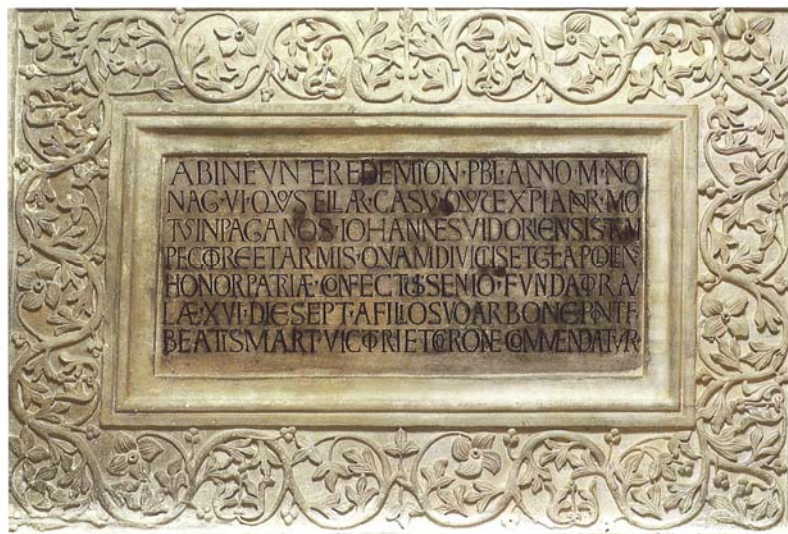 AB INEVNTE REDEMTION · PBL · ANNO · M · NO
NAG · VI · QVO STELLAR · CASVS · QVO ET EXPIANDOR · MO
TVS IN PAGANOS · IOHANNES VIDORIENSIS TAM
PECTORE ET ARMIS · QVAM DIVICIIS ET
HONOR PATRIÆ · CONFECTVS SENIO · FVNDATOR AV
LÆ · XVI · DIE SEPT · A FILIO SVO ARBONE PONTIF
BEATIS MART VICTORI ET CORONE COMMENDATVR